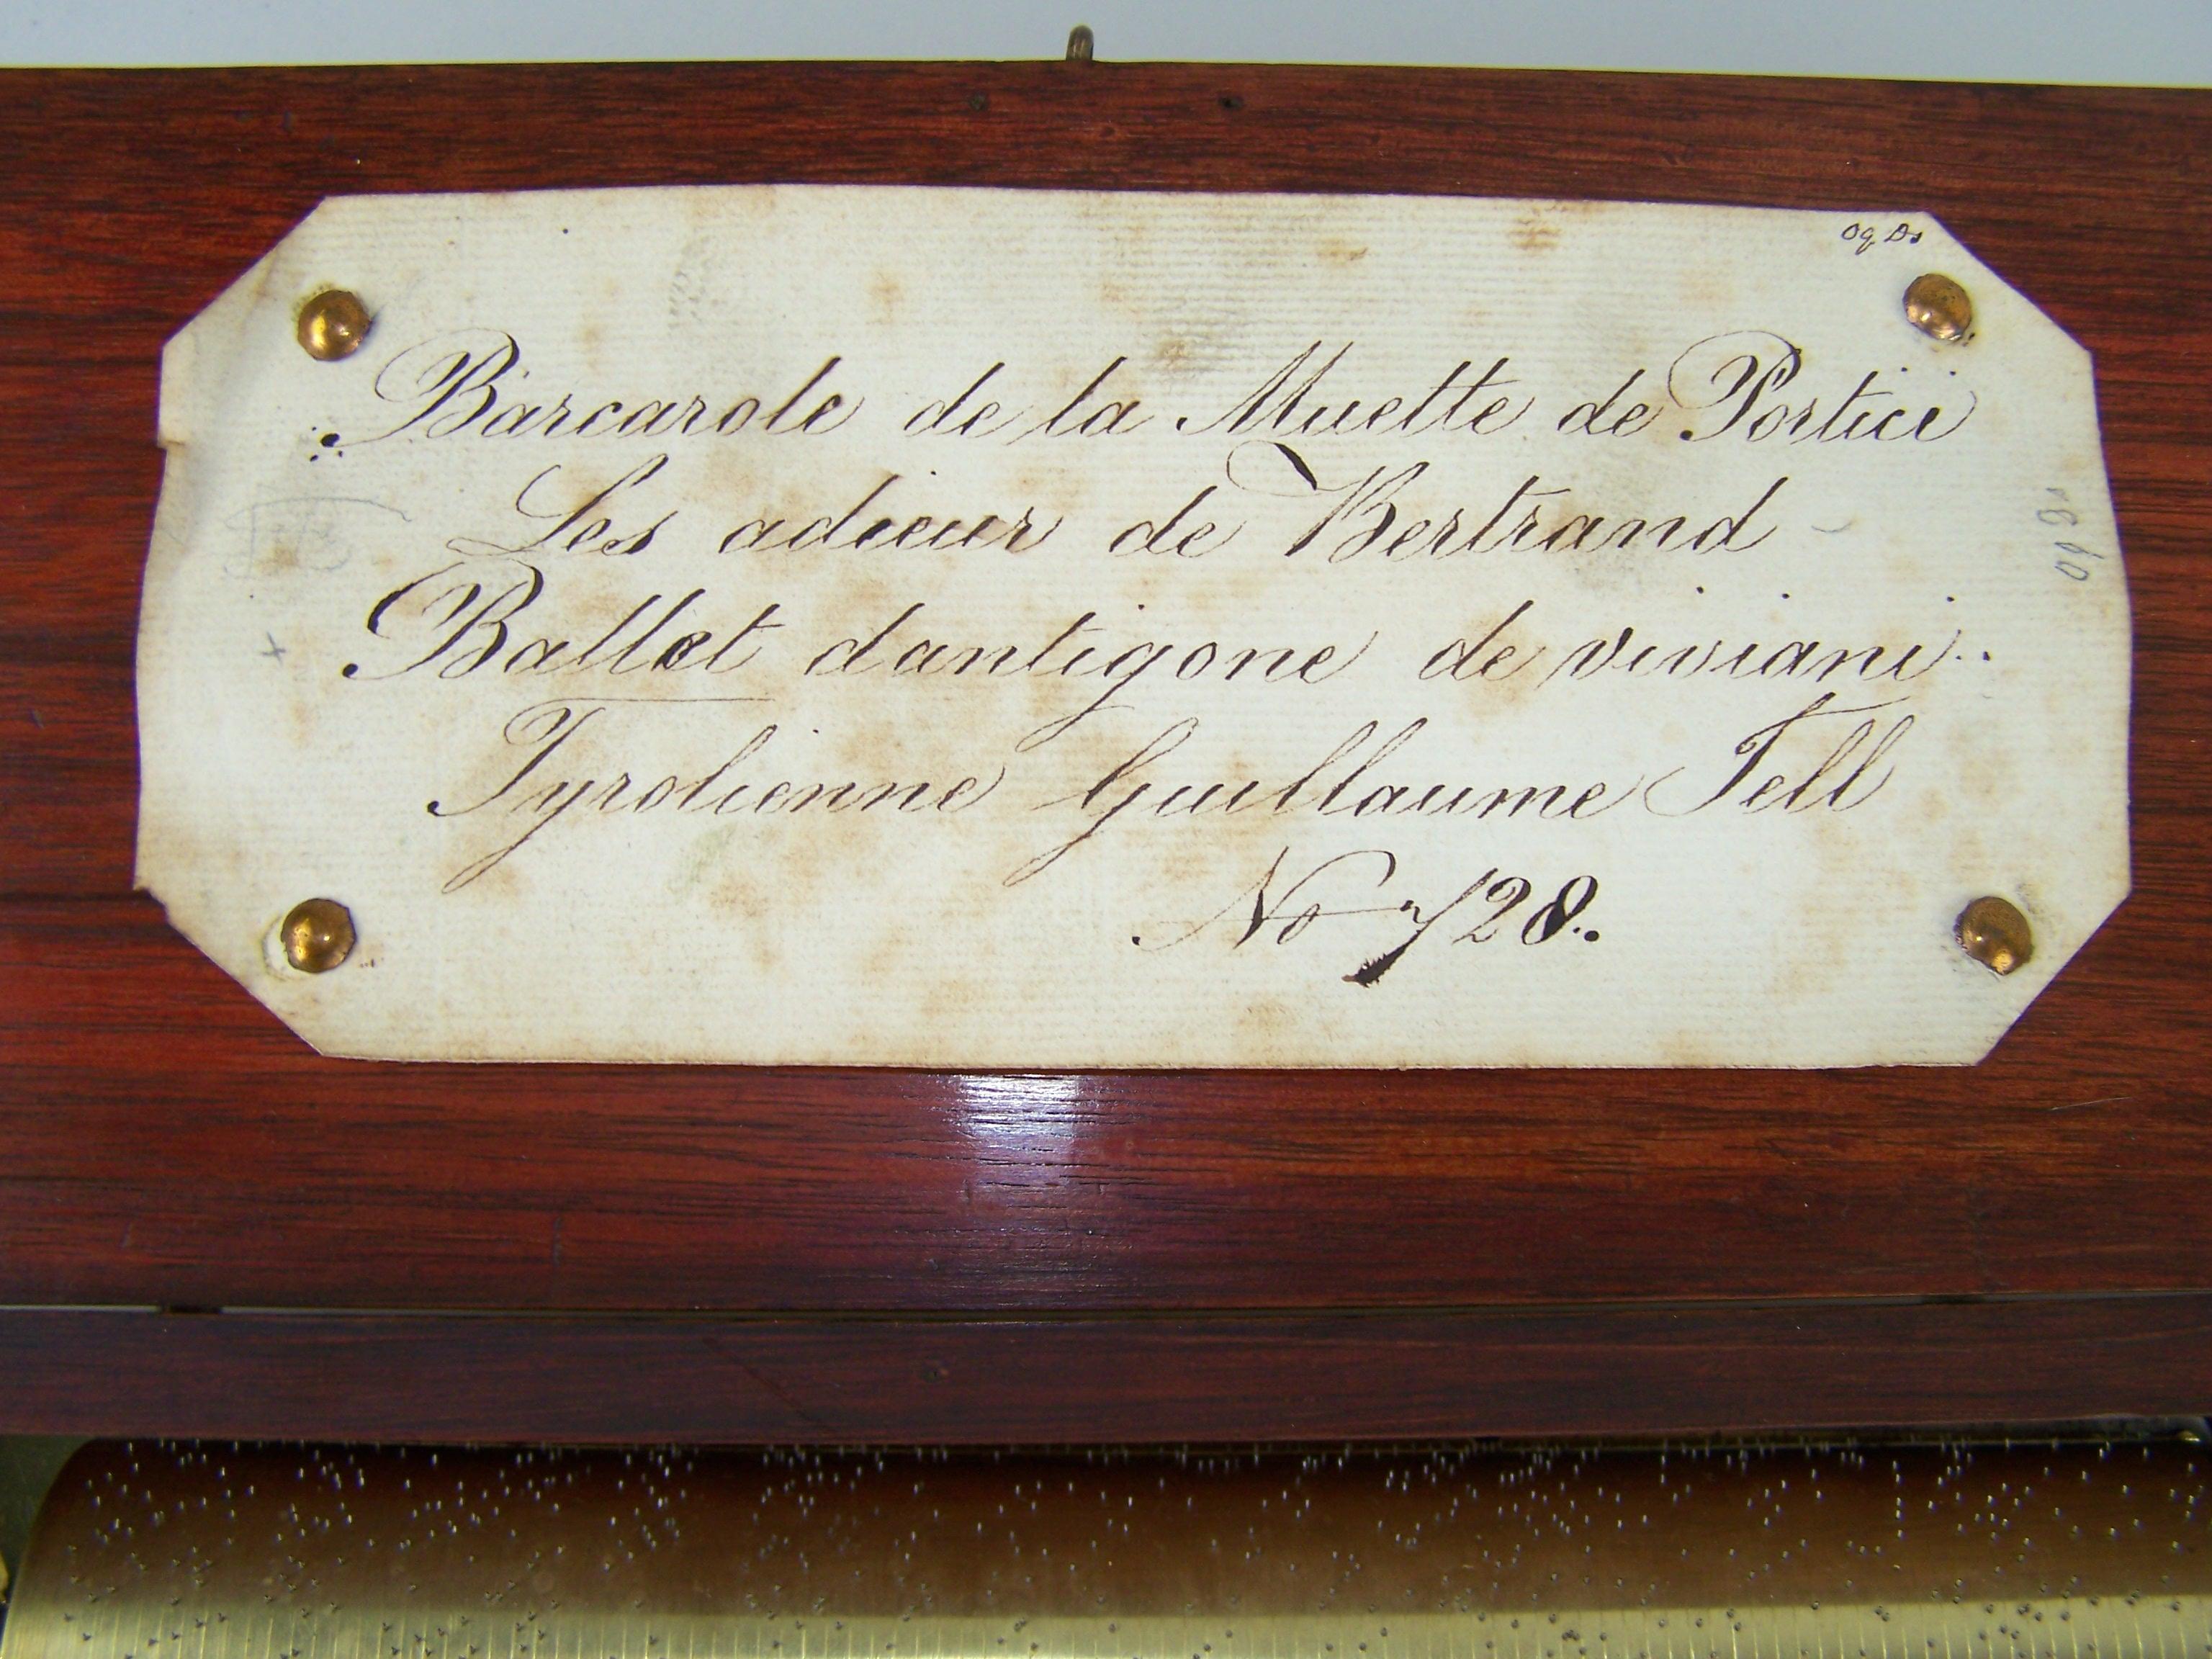 Barcarole de la Muette de Portici
Les adieux de Bertrand
Ballet dantigone de viviani
Tyrolienne Guillaume Tell
No 728.